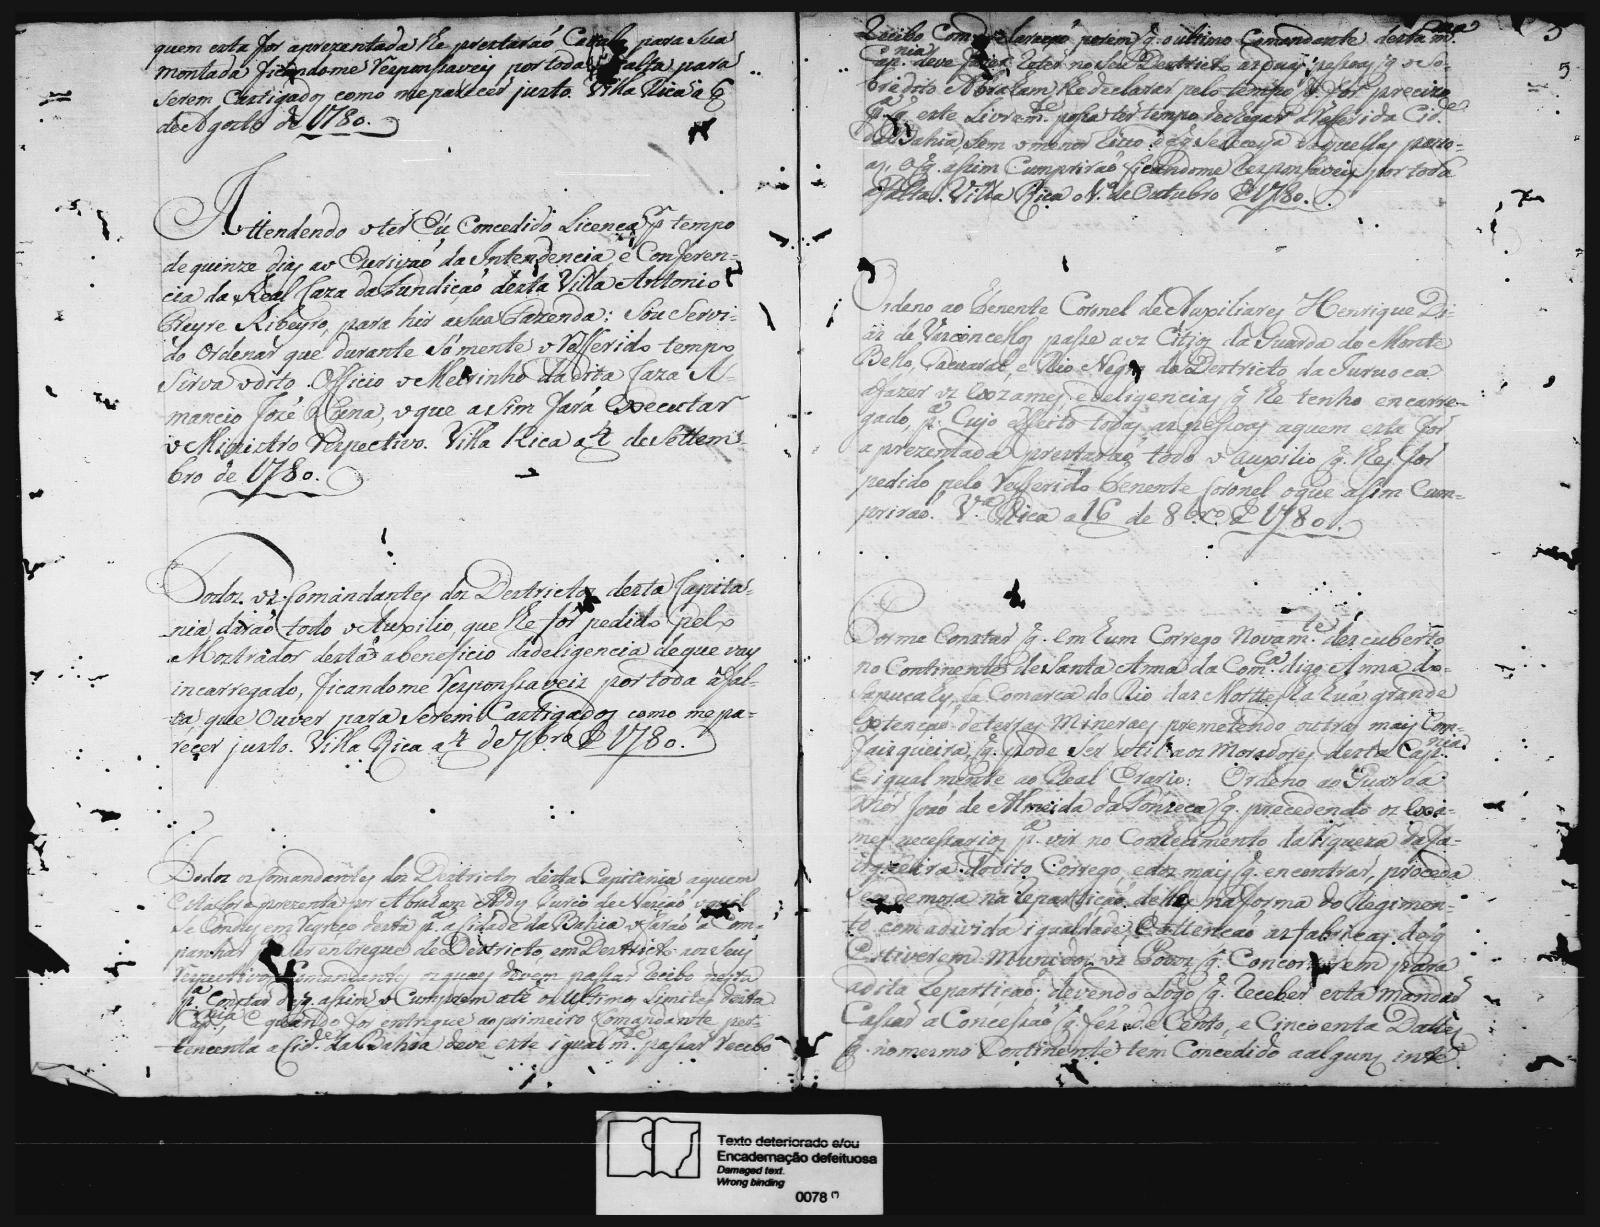 quem esta for aprezentada lhe prestaraó Cavalo para sua
montada ficandome Responsaveis por toda falta para
serem Castigados como me parecer justo. Villa Rica a 6
de Agosto de 1780.
Attendendo o ter Eú Concedido Licença p.ª tempo
de quinze dias ao Escrivaó da Intendencia e Conferen-
cia da Real Caza da Fundiçaó desta Villa Antonio
Freyre Ribeyro, para hir a sua Fazenda: Sou Servi-
do Ordenar que durante Sómente o Refferido tempo
Sirva o dito Officio o Meirinho da dita Caza A-
mancio Jozé Cuna, o que assim fará Executar
o Ministro Respectivo. Villa Rica a 4 de Settem-
bro de 1780.
Todos os Comandantes dos Destrictos desta Capita-
nia daraó todo o Auxilio, que lhe fór pedido pelo
Mostrador desta a beneficio da deligencia de que vay
incarregado, ficandome Responsaveis por toda a fal-
ta que Ouver para Serem Castigados como me pa-
recer justo. Villa Rica a 4 de 7bro de 1780.
Todos os Comandantes dos Destrictos desta Capitania aquem
esta for aprezenta por Abraham Turco de Naçaó o qual
Se Conduz em Regreço desta p.ª a Cidade da Bahia o faraó a Com-
panhar Ser entregue de Destricto, em Destricto aos Seus
respectivos Comandantes os quaes devem passar recibo nesta
p.ª Constar q. assim o Cumprem até os Ultimos Limites desta
Cap.nia e quando for entregue ao primeiro Comandante per-
tencente a Cid.e da Bahia deve este igualm.e passar recibo
5
5
Recibo Com declaraçaó porem q. o ultimo Comandante desta m.ma
Cap.nia deve fazer no seu Destricto as q o So-
bredito Abraham lhe declarar pelo tempo q for precizo
p.ª q. este Livrem.e possa ter tempo de chegar a referida Cid.e
da Bahia, sem o menor
as. O q. assim Cumpriraó ficandome Responsaveis por toda
a falta. Villa Rica o 1.º de Outubro de 1780.
Ordeno ao Tenente Coronel de Auxiliares Henrique Di-
as de Vasconcellos passe aos Citios da Guarda do Monte
Bello, e Rio Negro do Destricto da Juruoca
a fazer os Exzames, e deligencias q lhe tenho encarre-
gado, p.ª Cujo effeito todas as pessoas aquem esta for
aprezentada prestaraó todo o auxilio q. lhes for
pedido pelo Refferido Tenente Coronel o que assim Cum-
priraó. V.ª Rica a 16 de 8bro de 1780.
Por me Constar q. em hum Corrego Novam.te descuberto
no Continente de Santa Anna da Com.ca digo Anna do
Sapucahy, da Comarca do Rio das Mortes, ha huá grande
Extençaó de terras Mineraes premetendo outra mais Com
faisqueira, q. pode Ser util aos Moradores desta Cap.nia
E igualmente ao Real Erario: Ordeno ao Guarda
Mor Joaó de Almeida da Fonseca q. precedendo os Exa-
mes necessarios p.ª vir no Conhecimento da Riqueza da Fa-
isqueira do dito Corrego, e dos mais q. encontrar, proceda
Sem demora na repartiçaó delle na forma do Regimen-
to com a divida igualdade, E attençaó as fabricas de q
Estiverem Munidos os Povos q. Concorrerem para
a dita repartiçaó; devendo Logo q. receber esta mandar
Cassar a Concessaó q. fez de Cento, e Cincoenta Dattas
q. no mesmo Continente tem Concedido a alguns inte
Texto deteriorado e/ou
Encadernação defeituosa
Damaged text.
Wrong binding
0078 (*)